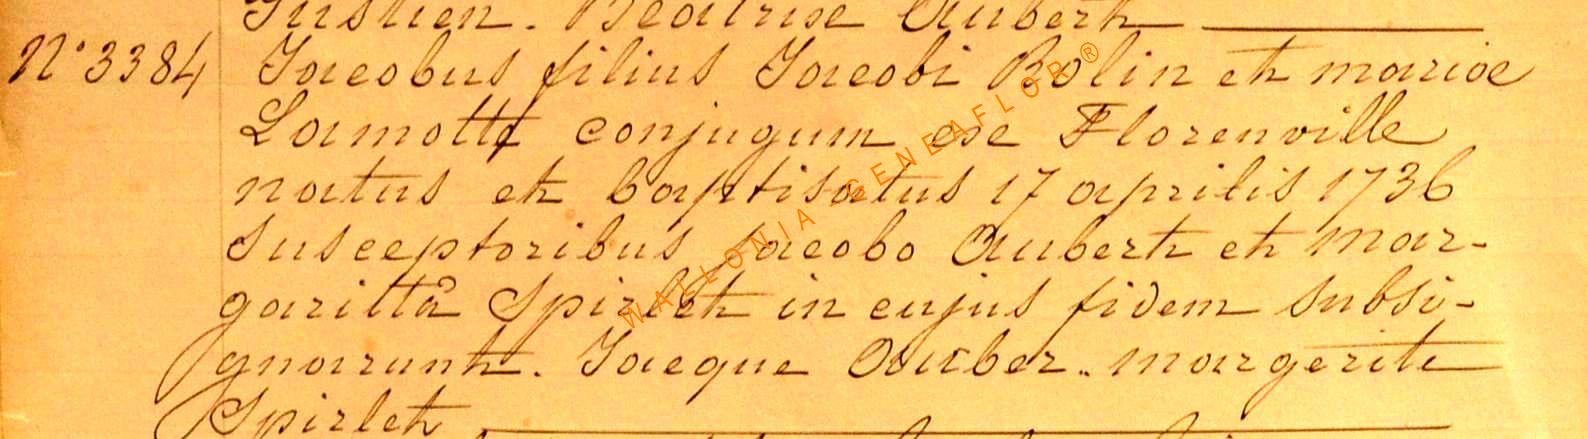 Justien. Béatrise Aubert
N° 3384 Jacobus filius Jacobi Bolin et mariae
Lamotte conjugum ex Florenville
natus et baptisatus 17 aprilis 1736
susceptoribus Jacobo Aubert et mar-
garittâ Spirlet in cujus fidem subsi-
gnarunt. Jacque Auber.. margerite
Spirlet
WALLONIA GENEAFLOR®